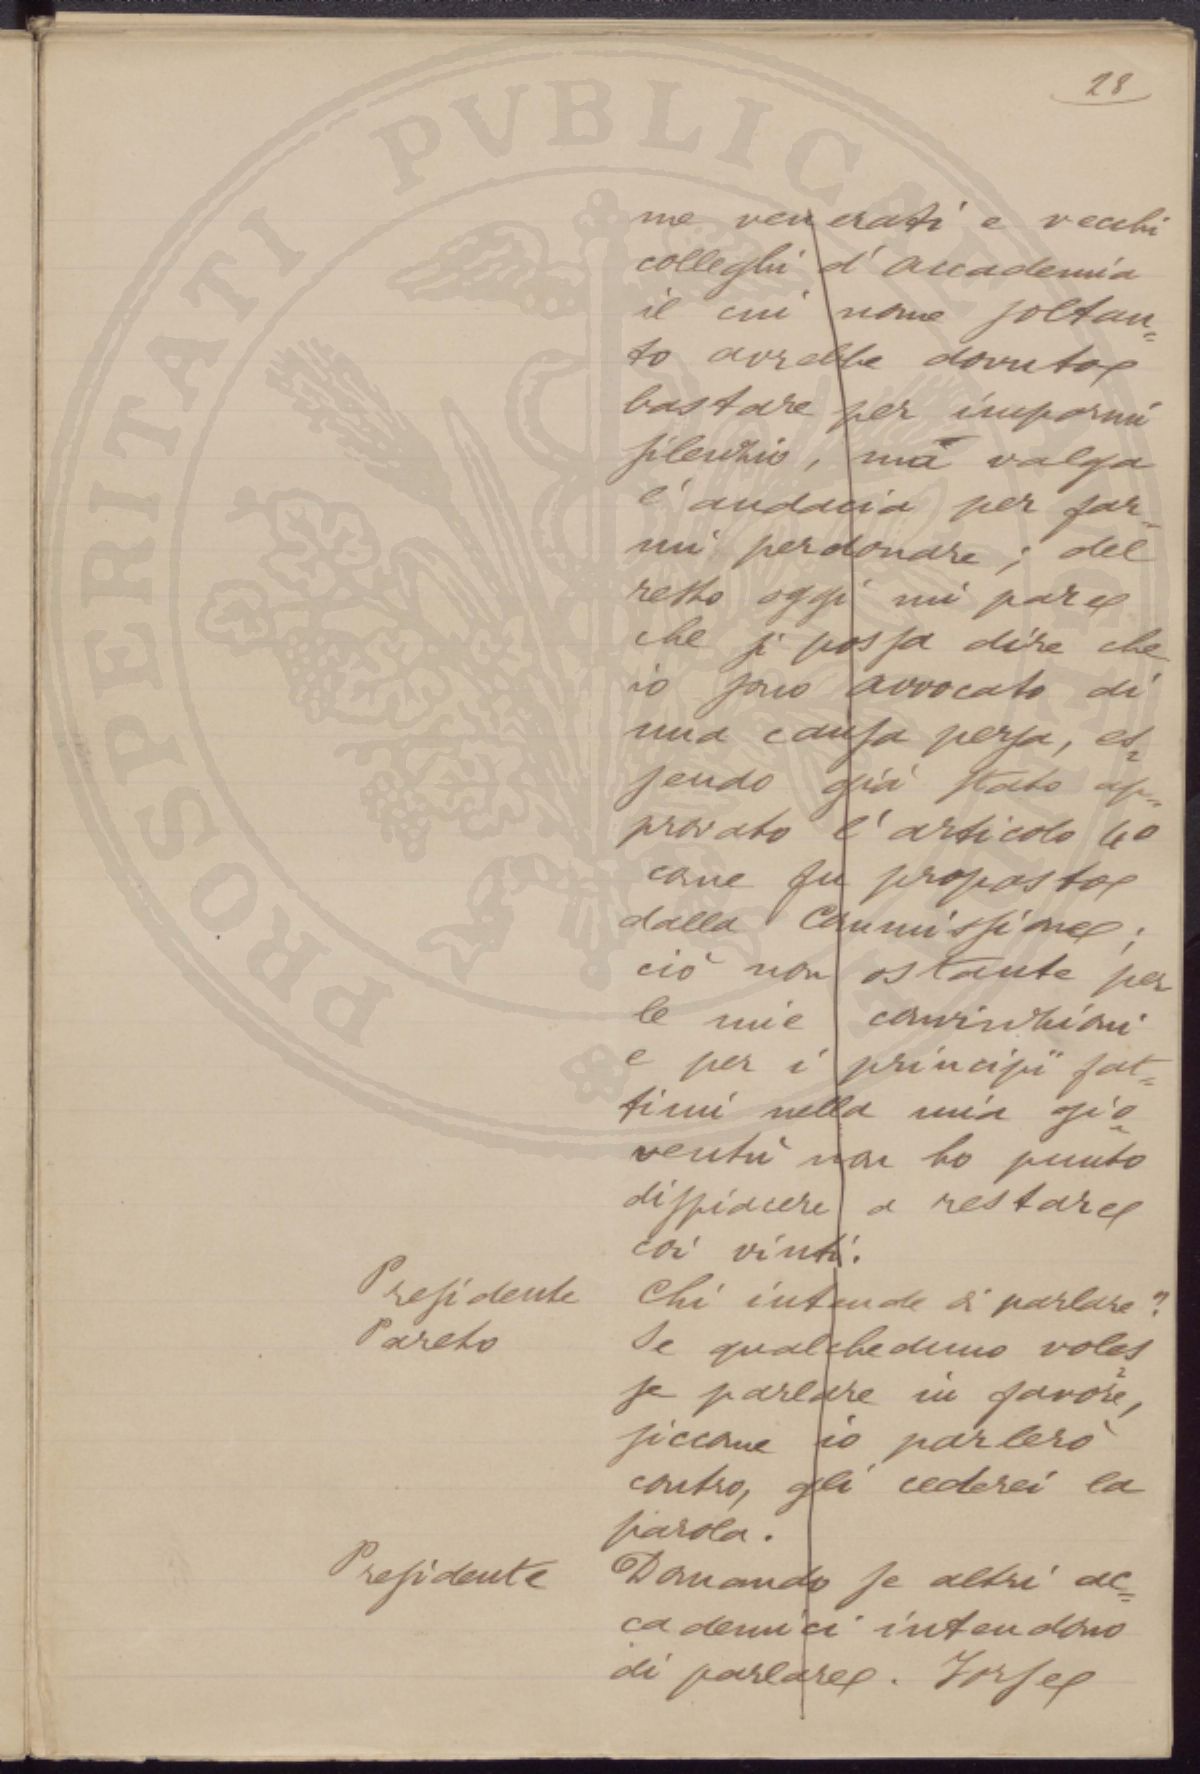 28
me venerati e vecchi
colleghi d'accademia
il cui nome soltan=
to avrebbe dovuto
bastare per impormi
silenzio, ma valga
l'audacia per far=
mi perdonare; del
resto oggi mi pare
che si possa dire che
io sono avvocato di
una causa persa, es=
sendo già stato ap=
provato l'articolo 40
come fu proposto
dalla Commissione;
ciò non ostante per
le mie convinzioni
e per i principii fat=
timi nella mia gio=
ventù non ho punto
dispiacere a restare
coi vinti.
Presidente Chi intende di parlare?
Pareto Se qualcheduno voles=
se parlare in favore,
siccome io parlerò
contro, gli cederei la
parola.
Presidente Domando se altri ac=
cademici intendono
di parlare. Forse
PROSPERITATI PVBLICAE